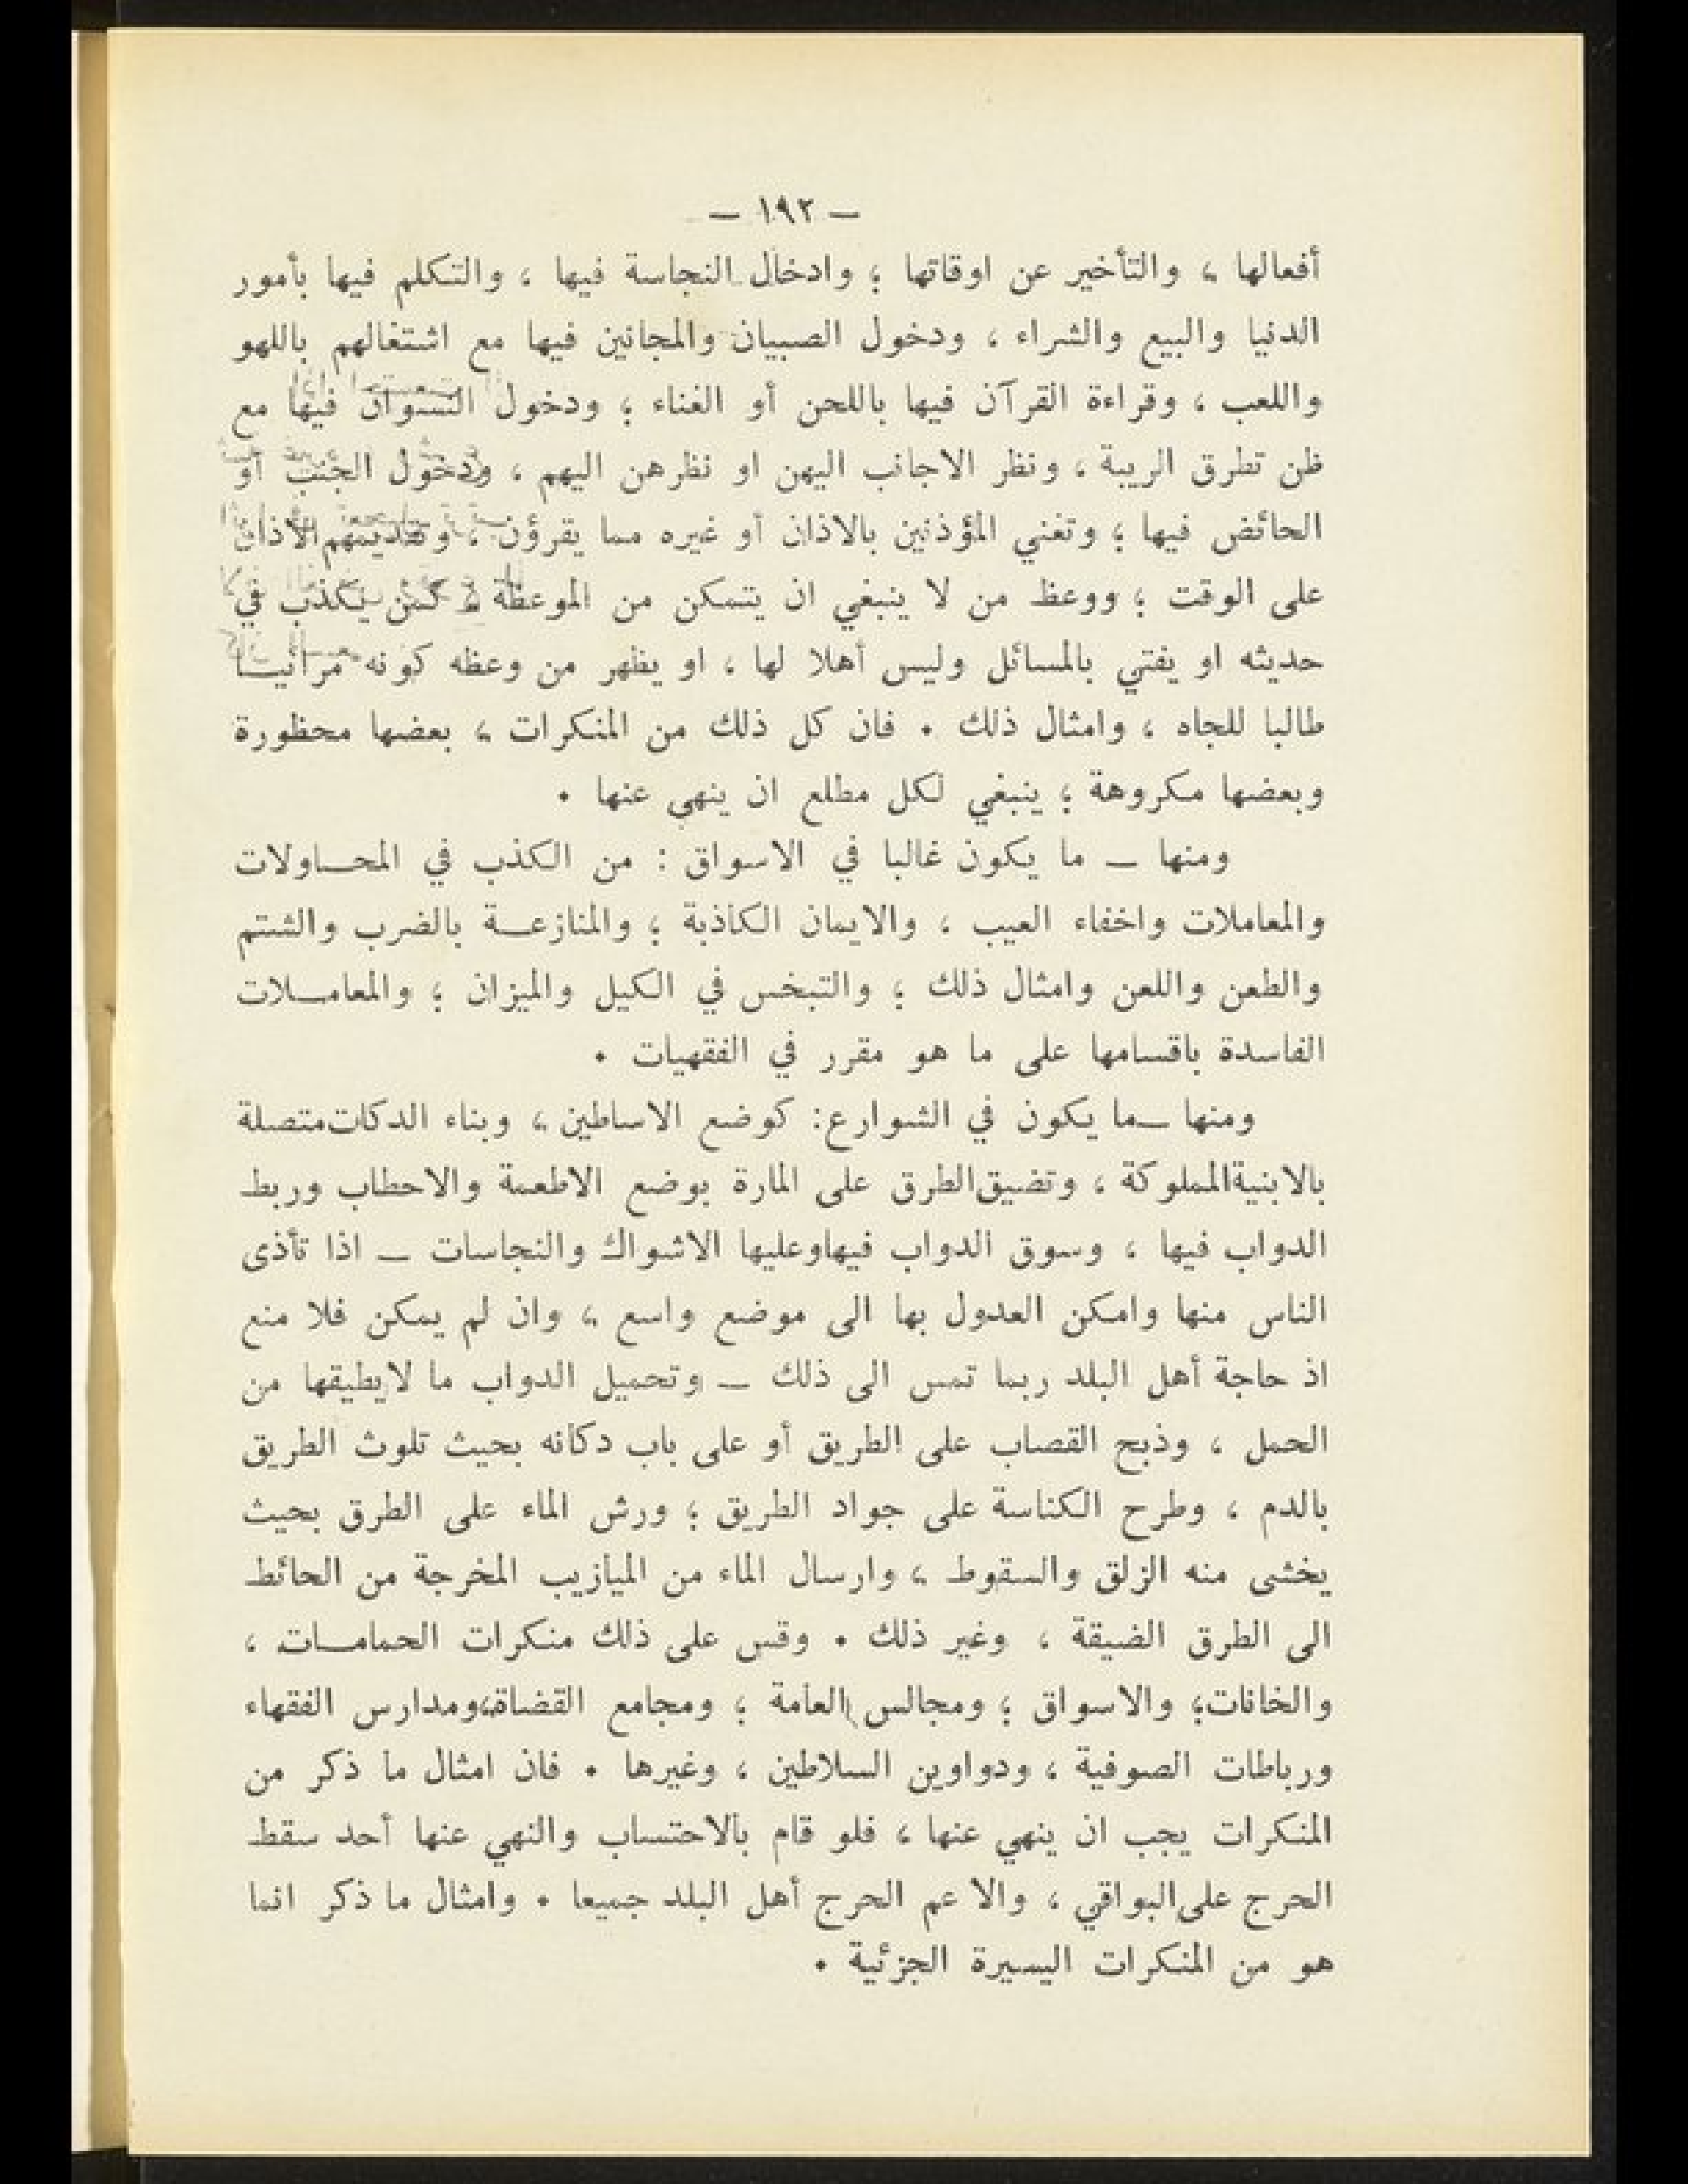 — ١٩٢ —
أفعالها ، والتأخير عن اوقاتها ؛ وادخال النجاسة فيها ، والتكلم فيها بأمور
الدنيا والبيع والشراء ، ودخول الصبيان والمجانين فيها مع اشتغالهم باللهو
واللعب ، وقراءة القرآن فيها باللحن أو الغناء ؛ ودخول النسوان فيها مع
ظن تطرق الريبة ، ونظر الاجانب اليهن او نظرهن اليهم ، ودخول الجنب أو
الحائض فيها ؛ وتغني المؤذنين بالاذان أو غيره مما يقرؤن ، وتقديمهم الأذان
على الوقت ؛ ووعظ من لا ينبغي ان يتمكن من الموعظة كمن يكذب في
حديثه او يفتي بالمسائل وليس أهلا لها ، او يظهر من وعظه كونه مرائيــا
طالبا للجاه ، وامثال ذلك . فان كل ذلك من المنكرات ، بعضها محظورة
وبعضها مكروهة ؛ ينبغي لكل مطلع ان ينهى عنها .
ومنها — ما يكون غالبا في الاسواق : من الكذب في المحــاولات
والمعاملات واخفاء العيب ، والايمان الكاذبة ؛ والمنازعــة بالضرب والشتم
والطعن واللعن وامثال ذلك ؛ والتبخس في الكيل والميزان ؛ والمعامــلات
الفاسدة باقسامها على ما هو مقرر في الفقهيات .
ومنها —ما يكون في الشوارع: كوضع الاساطين ، وبناء الدكات متصلة
بالابنية المملوكة ، وتضيق الطرق على المارة بوضع الاطعمة والاحطاب وربط
الدواب فيها ، وسوق الدواب فيها وعليها الاشواك والنجاسات — اذا تأذى
الناس منها وامكن العدول بها الى موضع واسع ، وان لم يمكن فلا منع
اذ حاجة أهل البلد ربما تمس الى ذلك — وتحميل الدواب ما لا يطيقها من
الحمل ، وذبح القصاب على الطريق أو على باب دكانه بحيث تلوث الطريق
بالدم ، وطرح الكناسة على جواد الطريق ؛ ورش الماء على الطرق بحيث
يخشى منه الزلق والسقوط ، وارسال الماء من الميازيب المخرجة من الحائط
الى الطرق الضيقة ، وغير ذلك . وقس على ذلك منكرات الحمامــات ،
والخانات؛ والاسواق ؛ ومجالس العامة ؛ ومجامع القضاة،ومدارس الفقهاء
ورباطات الصوفية ، ودواوين السلاطين ، وغيرها . فان امثال ما ذكر من
المنكرات يجب ان ينهي عنها ، فلو قام بالاحتساب والنهي عنها أحد سقط
الحرج على البواقي ، والا عم الحرج أهل البلد جميعا . وامثال ما ذكر انما
هو من المنكرات اليسيرة الجزئية .